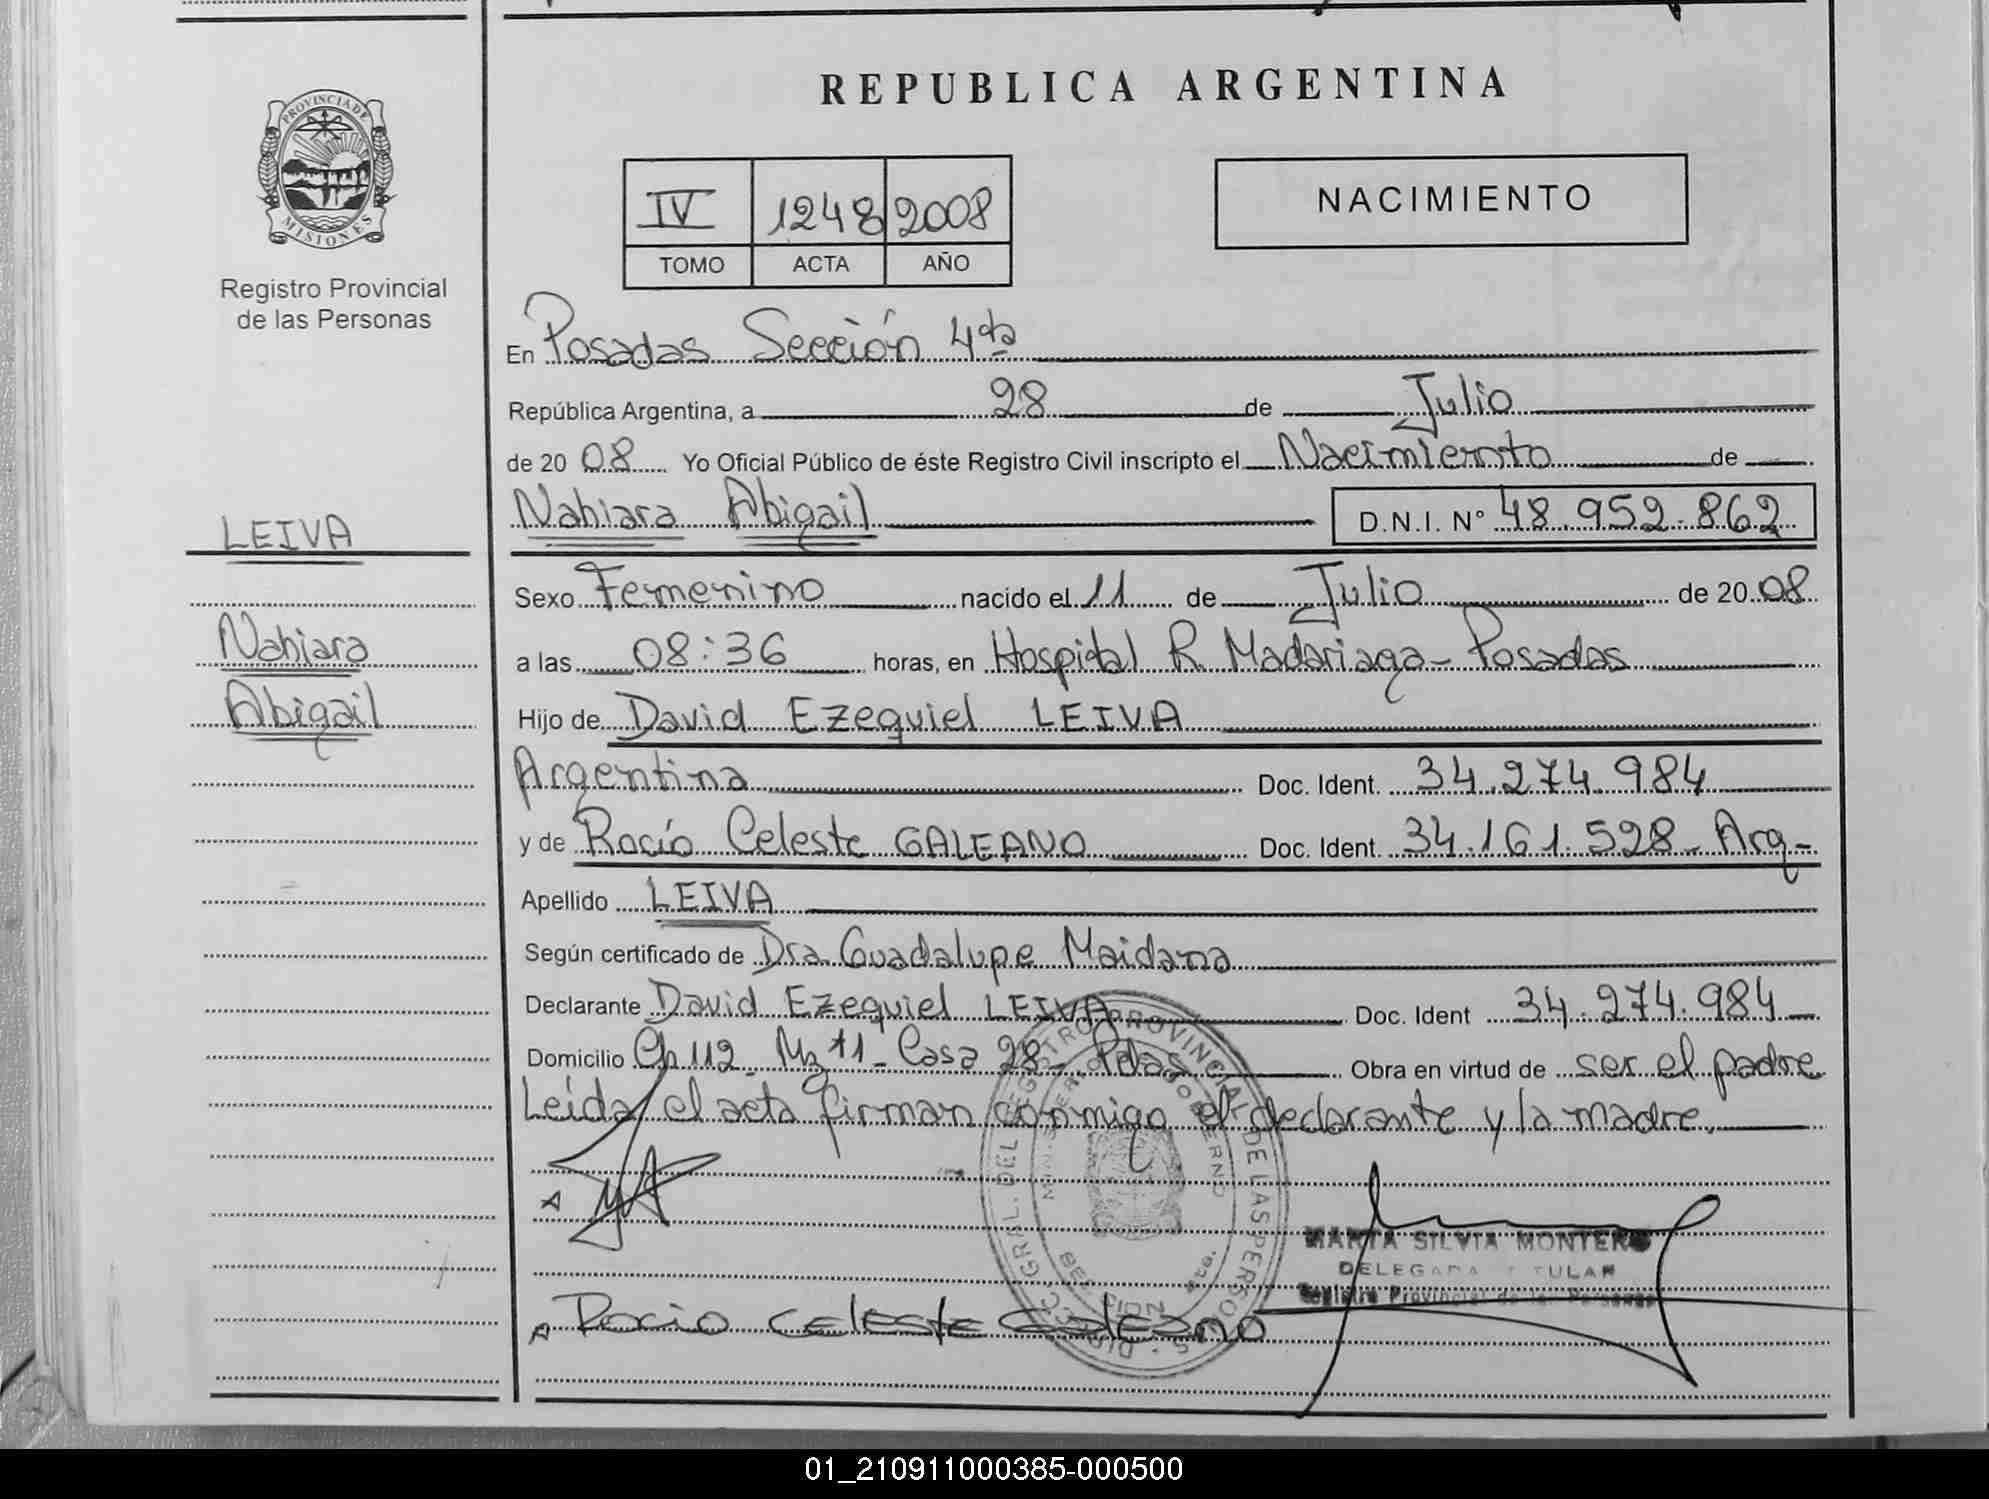 REPUBLICA ARGENTINA
PROVINCIA DE MISIONES
Registro Provincial
de las Personas
NACIMIENTO
IV 1248 2008
TOMO ACTA AÑO
En Posadas Sección 4ta
República Argentina, a 28 de Julio
de 2008 Yo Oficial Público de éste Registro Civil inscripto el Nacimiento de
Nahiara Abigail D.N.I. Nº 48.952.862
LEIVA
Nahiara
Abigail
Sexo Femenino nacido el 11 de Julio de 2008
a las 08:36 horas, en Hospital R Madariaga - Posadas
Hijo de David Ezequiel LEIVA
Argentina Doc. Ident. 34.274.984
y de Rocío Celeste GALEANO Doc. Ident. 34.161.528 - Arg -
Apellido LEIVA
Según certificado de Dra Guadalupe Maidana
Declarante David Ezequiel LEIVA Doc. Ident 34.274.984
Domicilio Ch 112 Mz 11 - Casa 28 - Pdas Obra en virtud de ser el padre
Leída el acta firman conmigo el declarante y la madre.
MARTA SILVIA MONTERO
DELEGADA TITULAR
Registro Provincial de las Personas
Rocio Celeste Galeano
01_210911000385-000500